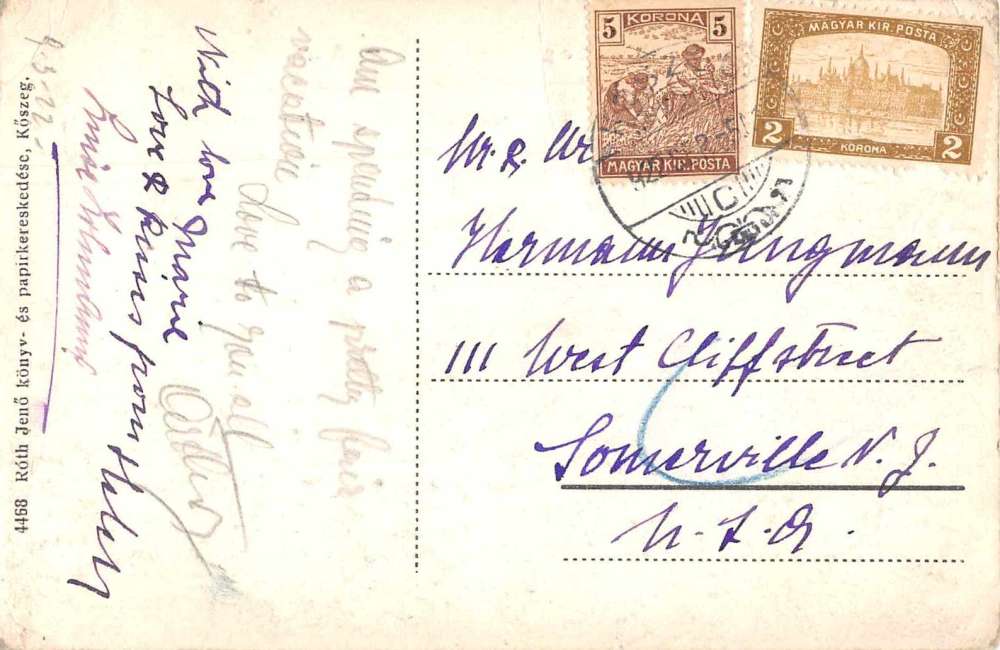 Are spending a pretty fair
vacation
Love to you all
With love Marie
Love & kisses from Helen
9.3.22.
4468 Róth Jenő könyv- és papirkereskedése, Kőszeg.
5 KORONA 5
MAGYAR KIR. POSTA
MAGYAR KIR. POSTA
2 KORONA 2
Mr.
Hermann Jungmann
111 West Cliffstreet
Somerville N. J.
U. S. A.